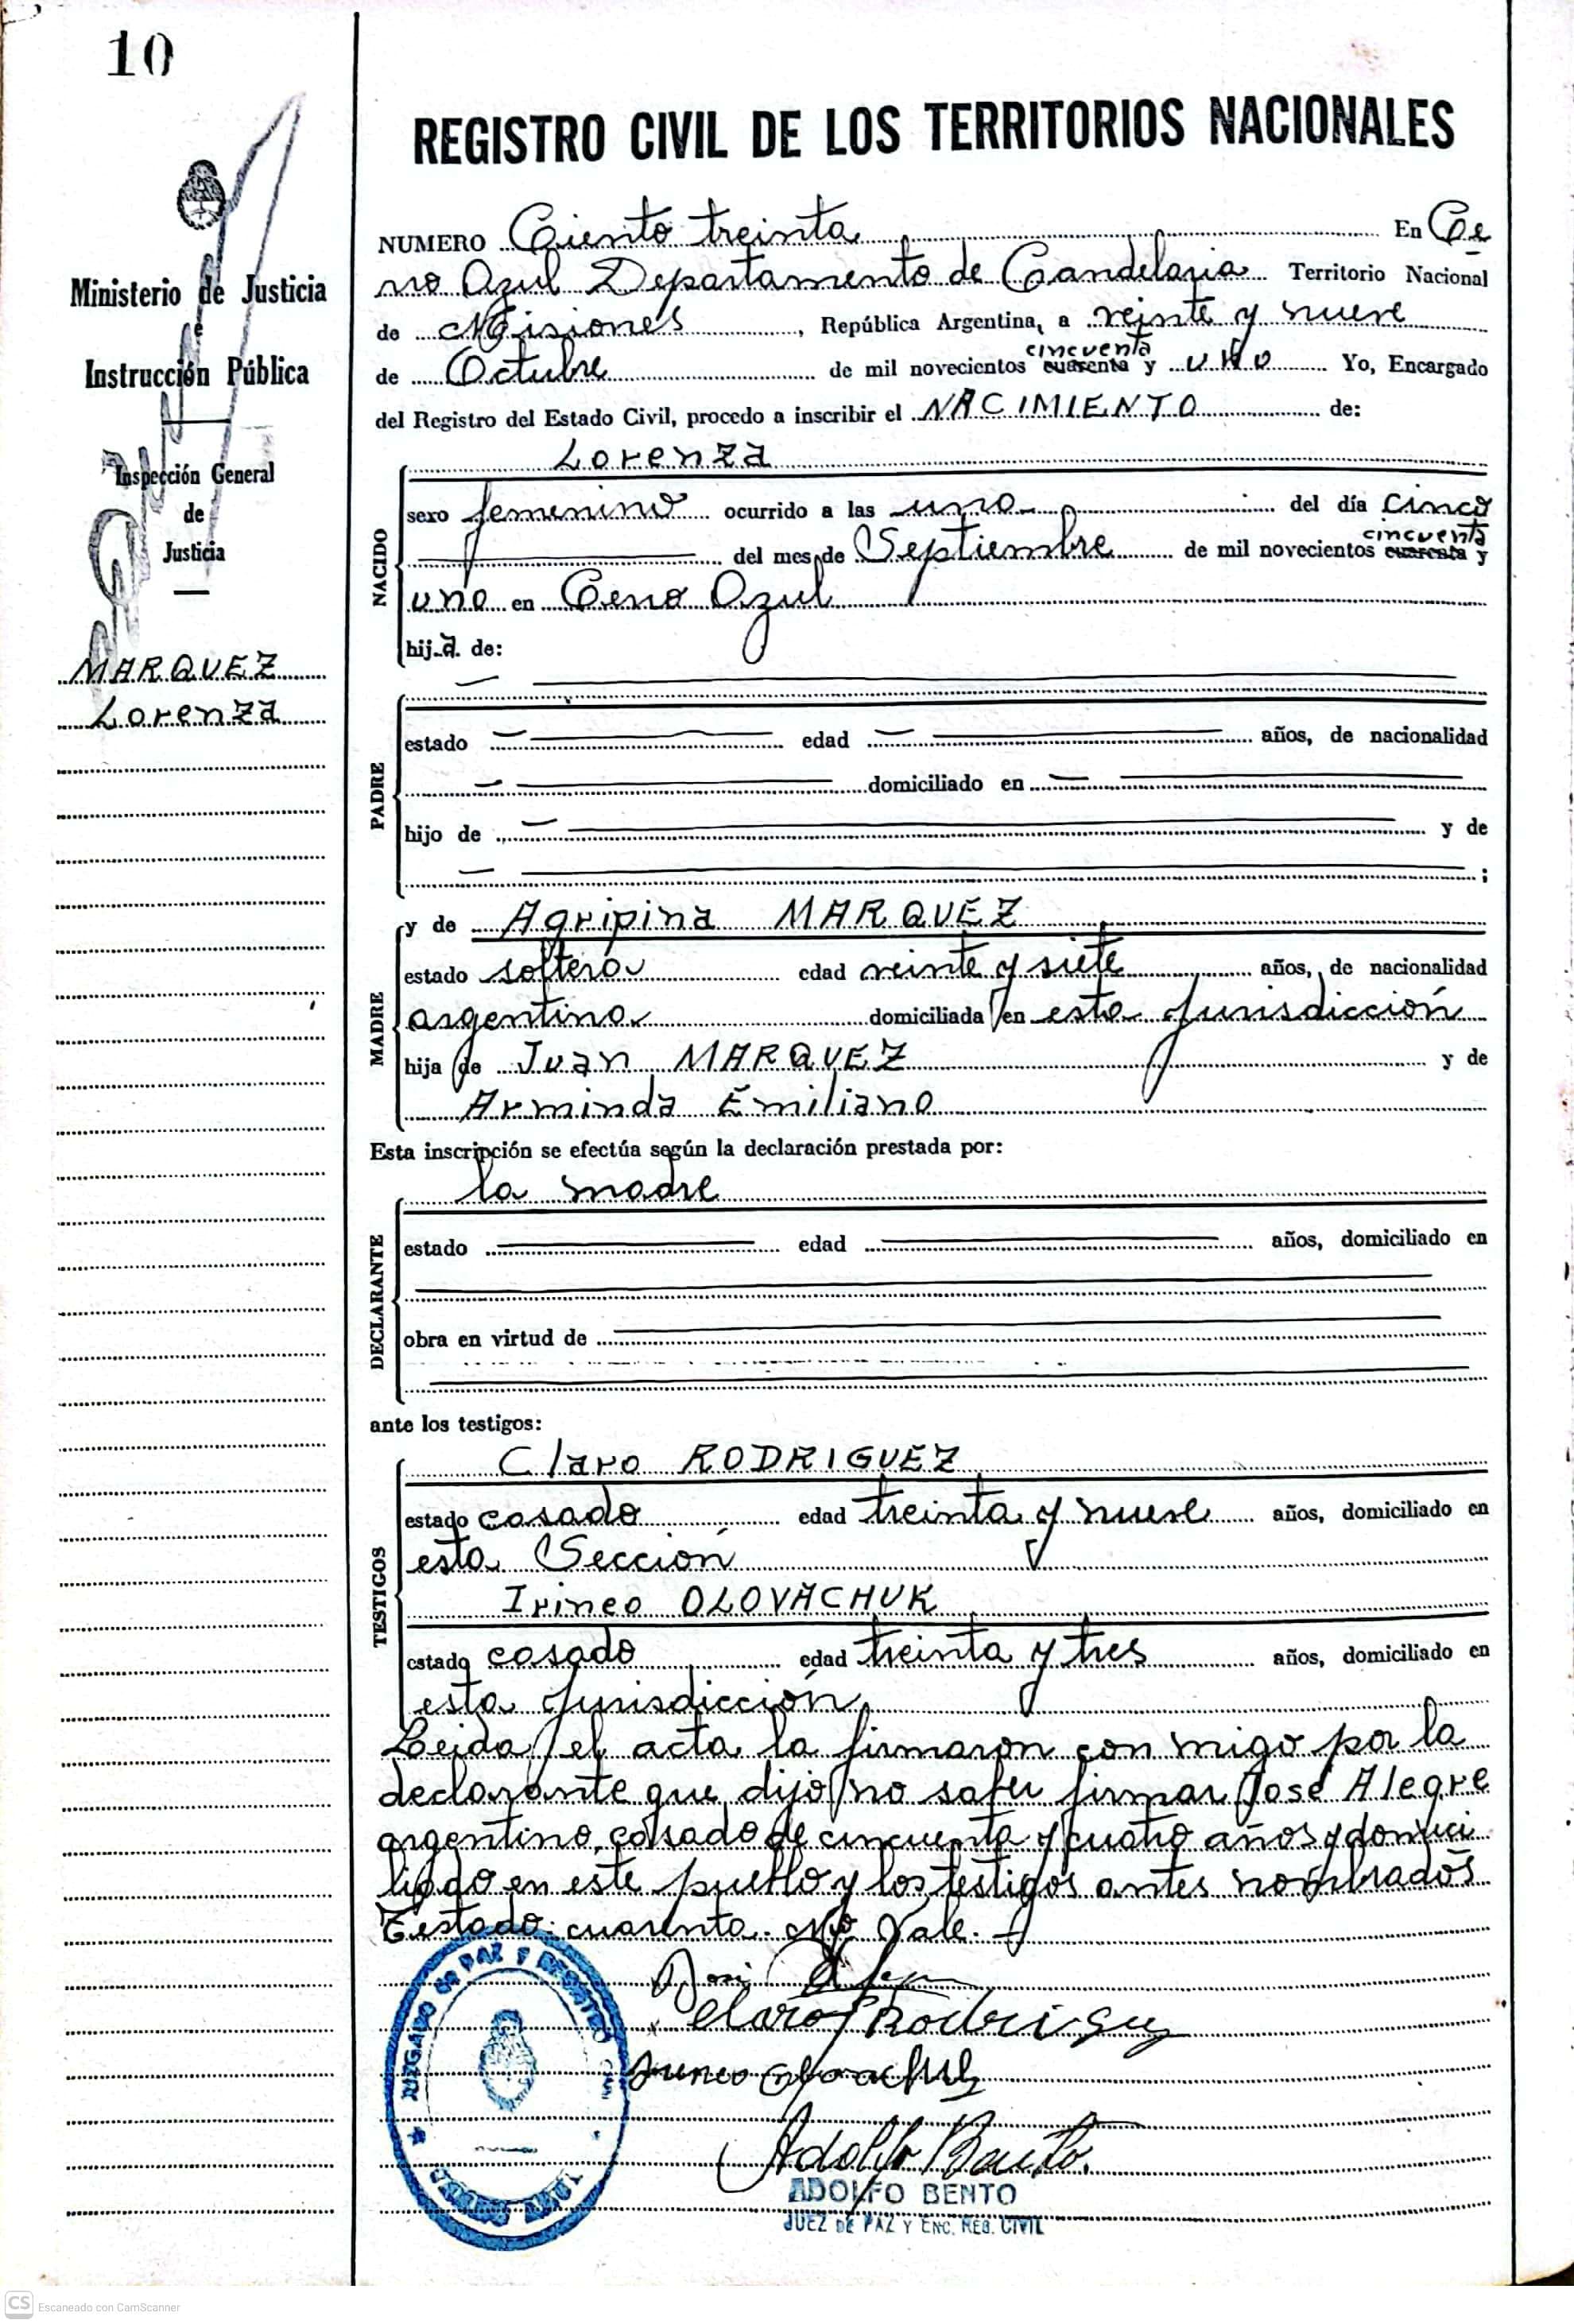 10
REGISTRO CIVIL DE LOS TERRITORIOS NACIONALES
Ministerio de Justicia
e
Instrucción Pública
Inspección General
de
Justicia
MARQUEZ
Lorenza
NUMERO Ciento treinta En Ce
rro Azul Departamento de Candelaria Territorio Nacional
de Misiones, República Argentina, a veinte y nueve
de Octubre de mil novecientos cuarenta cincuenta y uno Yo, Encargado
del Registro del Estado Civil, procedo a inscribir el NACIMIENTO de:
NACIDO
Lorenza
sexo femenino ocurrido a las una del día cinco
del mes de Septiembre de mil novecientos cuarenta cincuenta y
uno en Cerro Azul
hija de:
PADRE
estado edad años, de nacionalidad
domiciliado en
hijo de y de
;
MADRE
y de Agripina MARQUEZ
estado soltera edad veinte y siete años, de nacionalidad
argentina domiciliada en esta jurisdicción
hija de Juan MARQUEZ y de
Arminda Emiliano
Esta inscripción se efectúa según la declaración prestada por:
DECLARANTE
la madre
estado edad años, domiciliado en
obra en virtud de
ante los testigos:
TESTIGOS
Claro RODRIGUEZ
estado casado edad treinta y nueve años, domiciliado en
esta Sección
Irineo OLOVACHUK
estado casado edad treinta y tres años, domiciliado en
esta jurisdicción
Leida el acta la firmaron con migo por la
declarante que dijo no saber firmar José Alegre
argentino, casado de cincuenta y cuatro años y domici
liado en este pueblo y los testigos antes nombrados
Testado: cuarenta. No Vale.
Claro Rodriguez
Adolfo Bento
ADOLFO BENTO
JUEZ DE PAZ Y ENC. REG. CIVIL
JUZGADO DE PAZ Y REGISTRO CIVIL
CS Escaneado con CamScanner